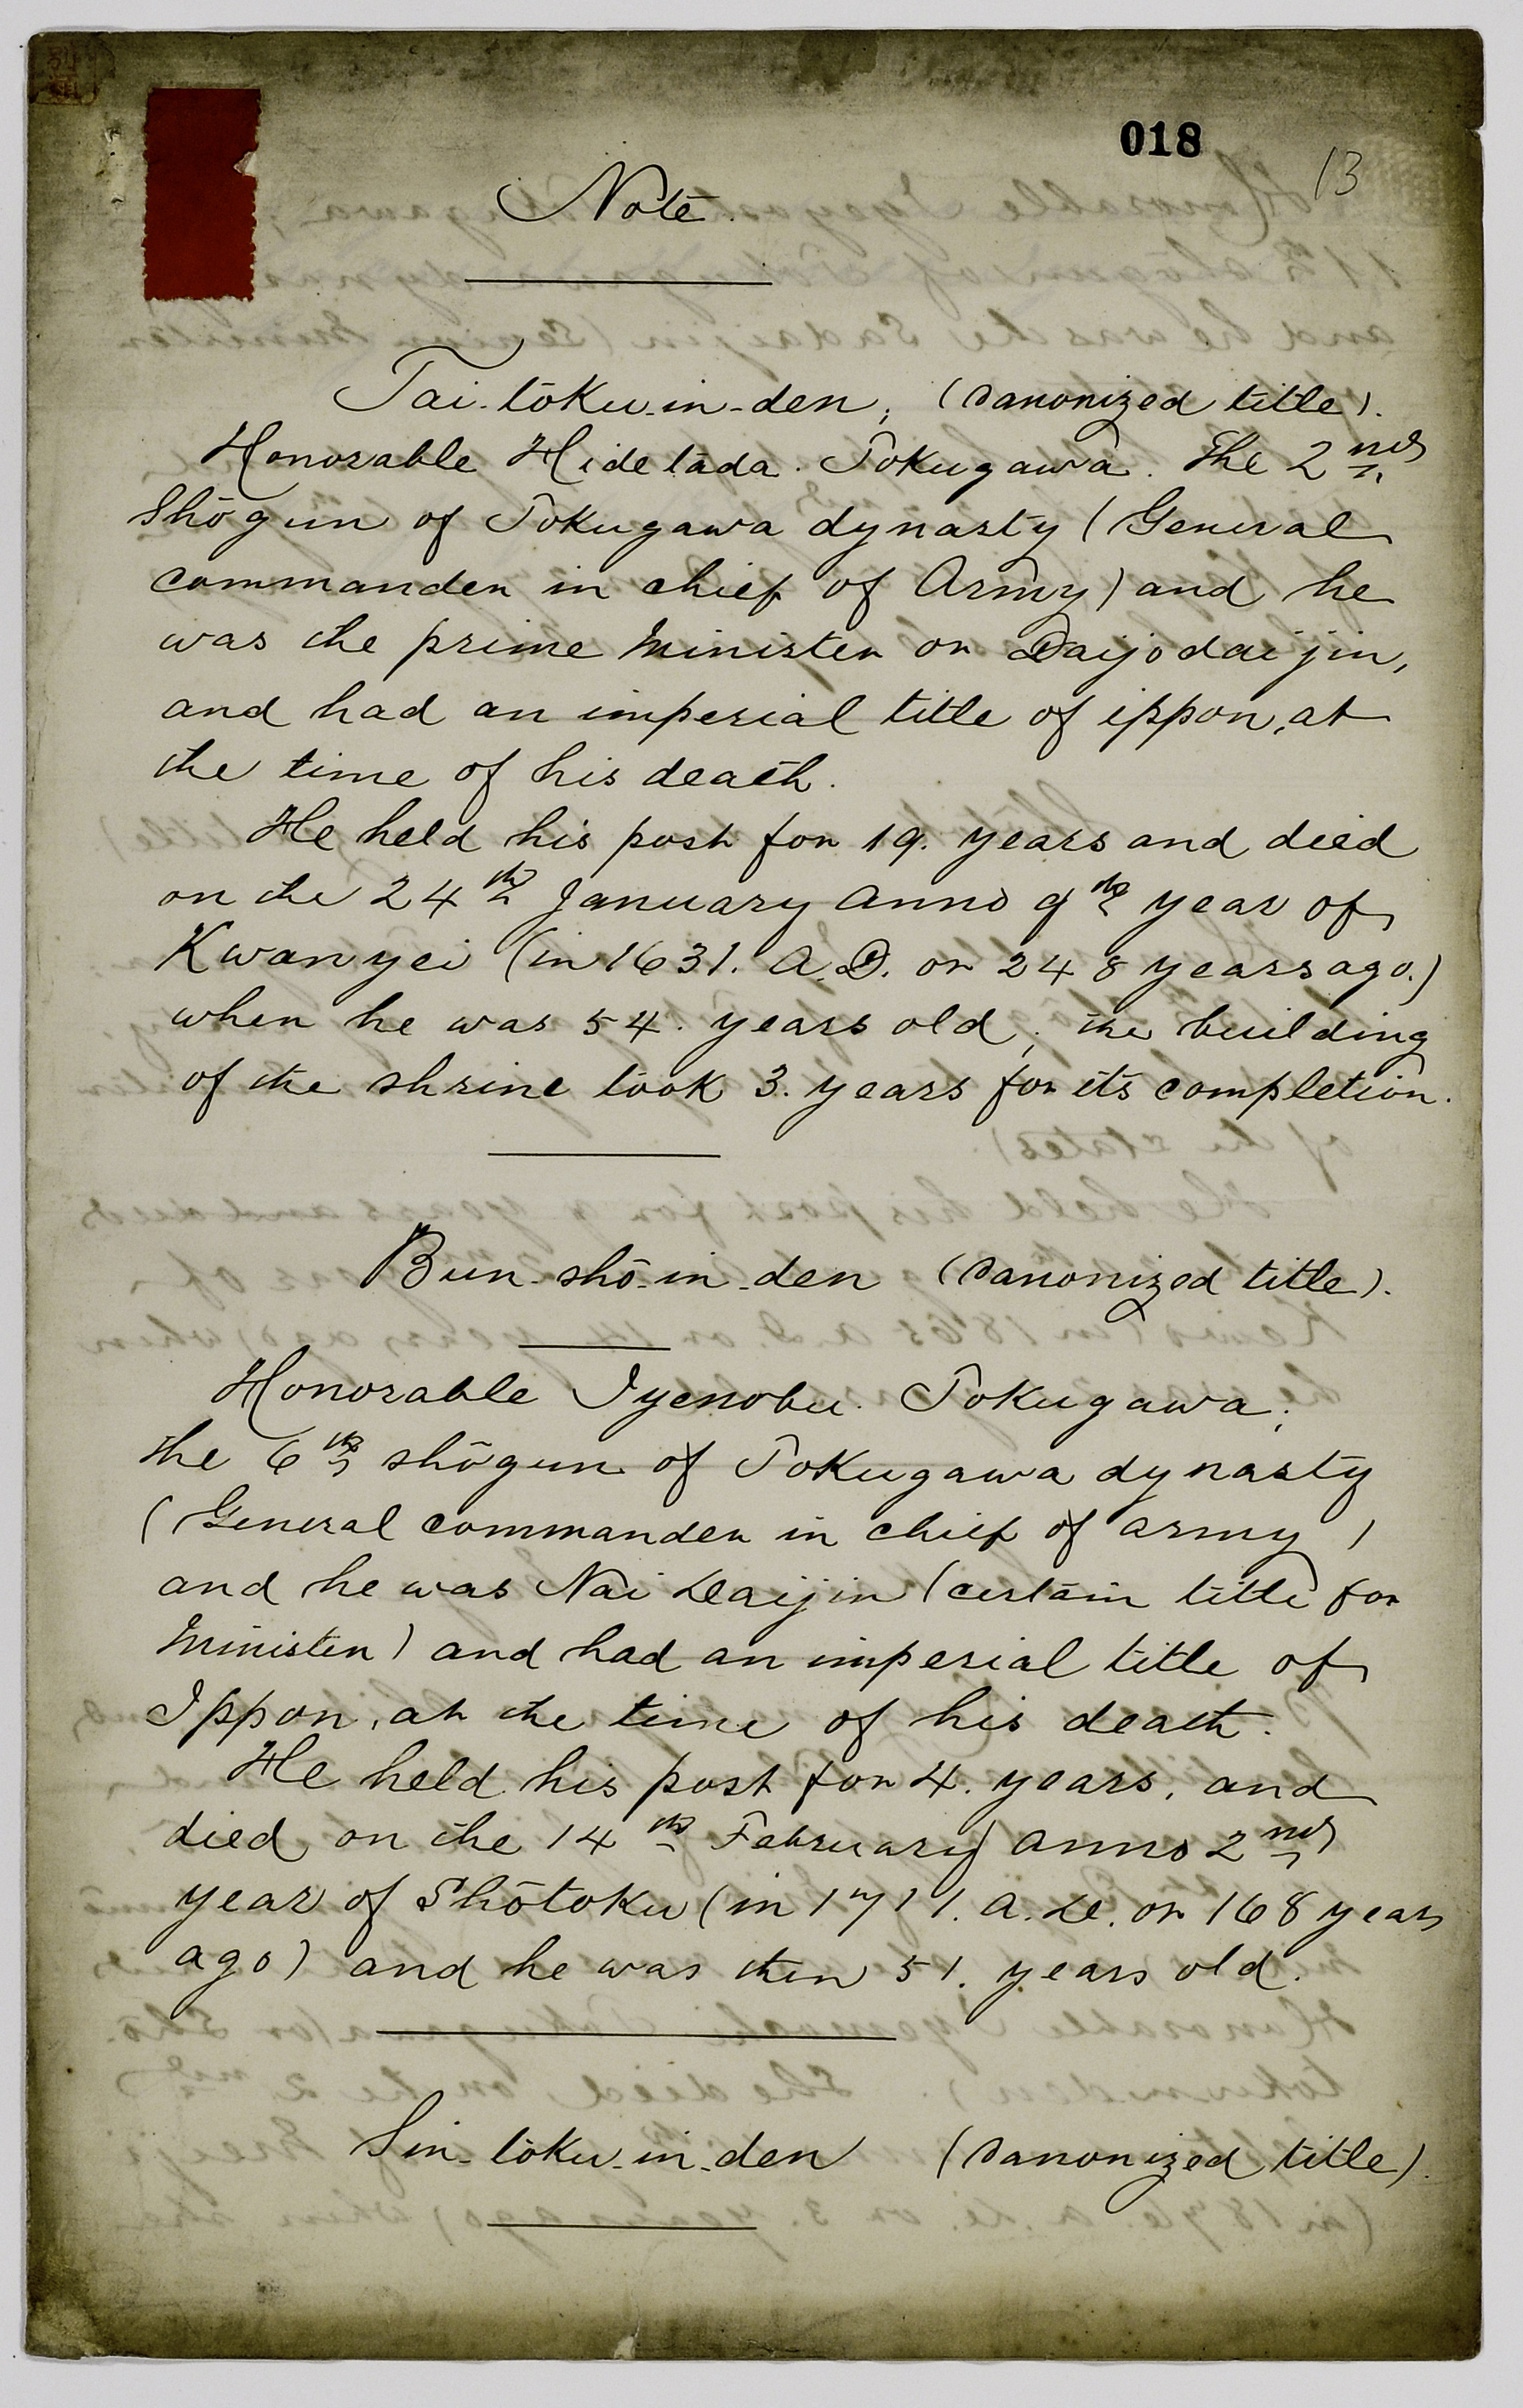 018
13
Note.
Tai-toku-in-den, (Canonized title).
Honorable Hidetada. Tokugawa. The 2nd
Shōgun of Tokugawa dynasty (General
commander in chief of Army) and he
was the prime minister or Daijodaijin,
and had an imperial title of ippon, at
the time of his death.
He held his post for 19. years and died
on the 24th January anno 9th year of
Kwanyei (in 1631. A.D. or 248 years ago.)
when he was 54. years old; the building
of the shrine took 3. years for its completion.
Bun-shō-in-den (Canonized title).
Honorable Iyenobu. Tokugawa;
the 6th shōgun of Tokugawa dynasty
(General commander in chief of army)
and he was Nai Daijin (certain title for
minister) and had an imperial title of
Ippon, at the time of his death.
He held his post for 4. years, and
died on the 14th February anno 2nd
year of Shōtoku (in 1711. A.D. or 168 years
ago) and he was then 51. years old.
Sin-toku-in-den (Canonized title).